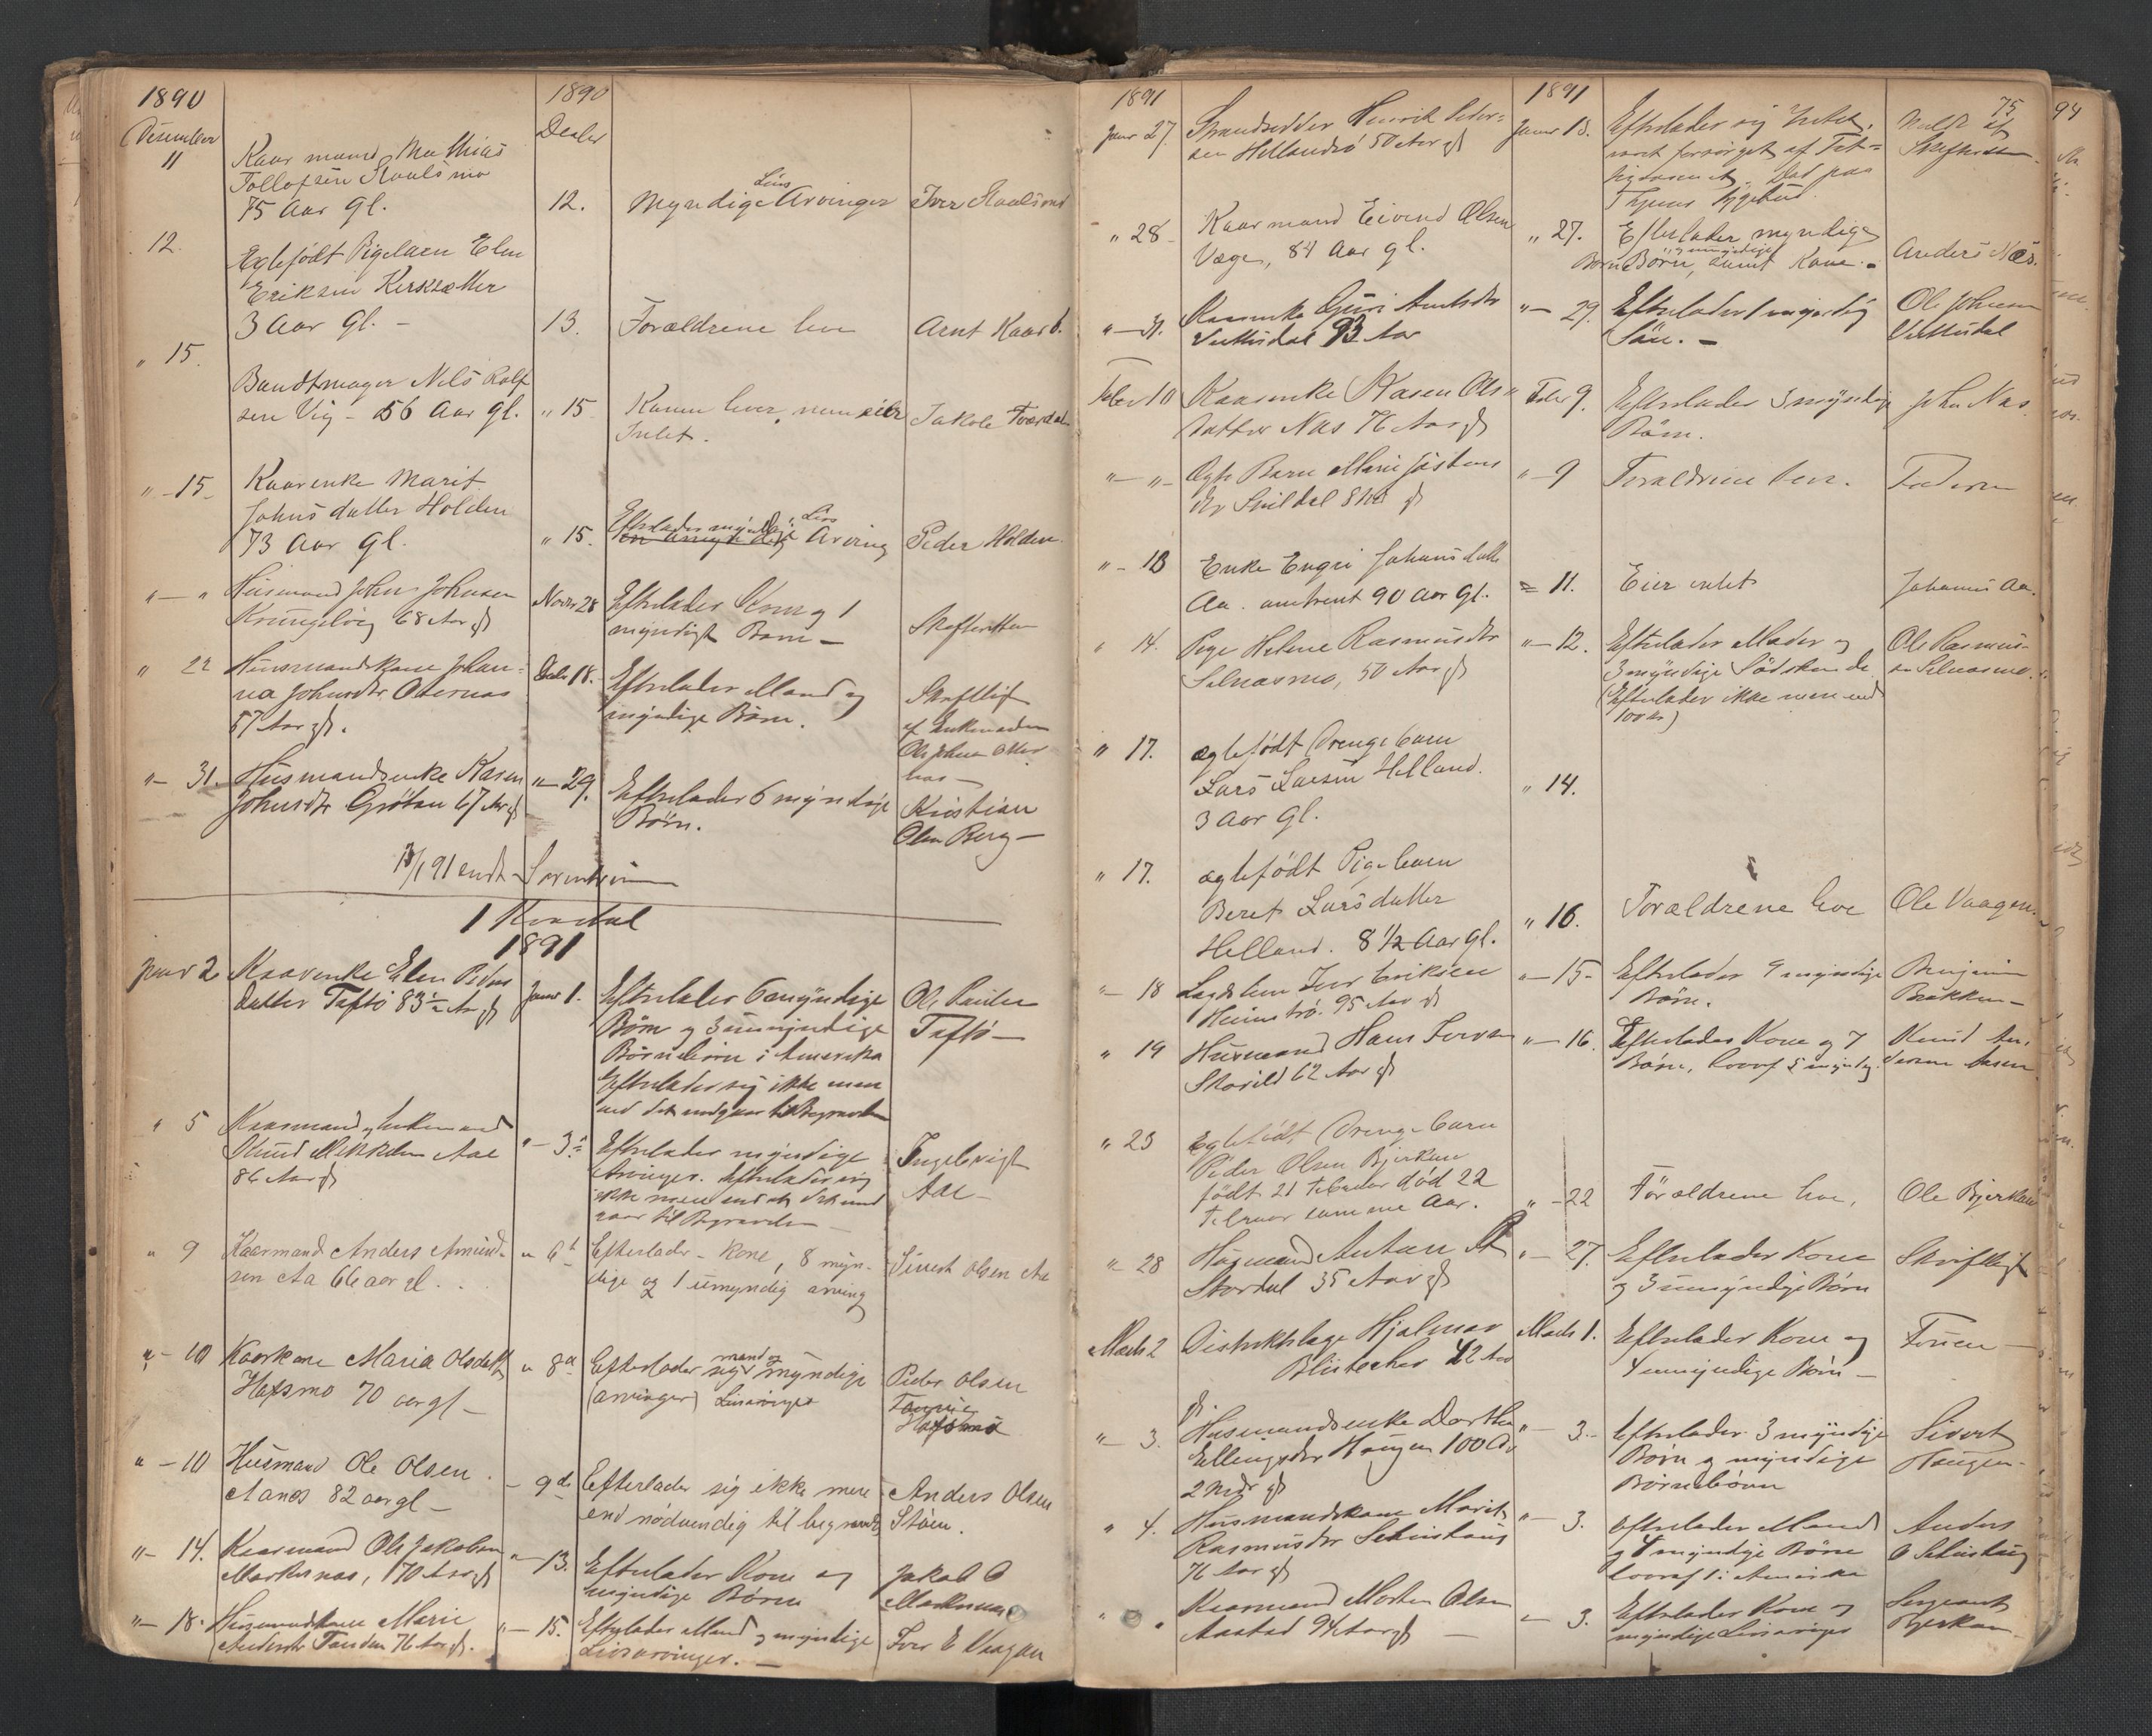 1890
1890
December
Decbr
11
Kaarmand Mathias
Tollefsen Staalsmo
75 Aar gl.
12.
Myndige Livs Arvinger
Iver Staalsmo
12.
Egtefødt Pigebarn Elen
Eriksen Kirksæther
3 Aar gl. –
13.
Forældrene leve
Arnt Kaar
" 15.
Bundtmager Nils Rolf
sen Vig – 56 Aar gl.
" 15
Konen lever, men eier
Intet.
Jakob
" – 15 –
Kaarenke Marit
Johnsdatter Holden
73 Aar gl.
" 15.
Efterlader myndige Livs
Arving
Peder Holden
" – "
Husmand John Johnsen
Krungelvig 68 Aar gl
Novbr 28
Efterlader Kone og 1
myndigt Barn –
Skifteretten
" 22
Husmandskone Johan-
na Johnsdtr
57 Aar gl.
Decbr 18.
Efterlader Mand og
myndige Børn.
Skriftlig
af Enkemanden
Ole Johnsen
" – 31.
Husmandsenke Karen
Johnsdtr Grøtan 67 Aar gl
" – 29.
Efterlader 6 myndige
Børn.
Kristian
Olsen Berg –
91 sendt Sorenskriveren
1 Kvartal
1891
Janr 2
Kaarenke Elen Peders
datter Taftø 83 ½ Aar gl
Janr 1.
Efterlader 6 myndige
Børn og 3 umyndige
Børnebørn i Amerika
Efterlader sig ikke mere
end det medgaar til Begravelsen
Ole
Taftø –
" 5
Kaarmand og Enkemand
Knud Mikkelsen Aae
86 Aar gl
" – 3
Efterlader myndige
Arvinger. Efterlader sig
ikke mere end det med
gaar til Begravelsen –
Ingebrigt
Aae –
" 9
Kaarmand Anders Amund-
sen Aa 66 aar gl. .
" 6
Efterlader – Kone, 8 myn-
dige og 1 umyndig arving
Sivert Olsen Aa
" – 10
Kaarkone Maria Olsdatter
Hafsmo 70 aar gl –
" 8
Efterlader sig mand og myndige
(arvinger) Livsarvinger
Peder Olsen
Hafsmo
" – 10
Husmand Ole Olsen
Aanes 82 aar gl –
– 9de
Efterlader sig ikke mere
end nødvendig til begravelse
Anders Olsen
Støen.
" – 14.
Kaarmand Ole Jakobsen
70 Aar gl
" – 13.
Efterlader Kone og
myndige Børn
Jakob O
" – 18.
Husmandskone Marie
Andersdtr Tanden 76 Aar gl.
" – 15.
Efterlader Mand og myndige
Livsarvinger. –
Iver E Vaagan
1891
1891
75
94
Janr 27.
Strandsidder Henrik Peder-
sen Hellandsø 50 Aar gl
Janr 18.
Efterlader sig Intet,
været forsørget af Fat-
tigvæsenet. Død paa
Sygehus.
" 28
Kaarmand Eivend Olsen
Væge, 84 Aar gl.
" 27.
Efterlader myndige
Børn og umyndige Børne Børn, samt Kone. –
Anders Næs.
" – 31.
Kaarenke Guri Arntsdtr
93 Aar
" – 29.
Efterlader 1 myndig
Søn. –
Ole Johnsen
Febr 10
Kaarenke Karen Ols
datter Næs 76 Aar gl
Febr 9.
Efterlader 3 myndige
Børn.
John Næs
" – "
Ægte Barn Marie Jostens
dtr
" 9
Forældrene leve.
Faderen
" – 13
Enke Engri Johansdatter
Aa. omtrent 90 Aar gl.
11.
Eier intet
Johannes Aa.
" 14.
Pige Helene Rasmusdtr
Selnæsmo, 50 Aar gl
" – 12.
Efterlader Moder og
3 myndige Södskende
(Efterlader ikke mere end
100 kr)
Ole Rasmus-
sen Selnæsmo.
" 17.
ægtefødt Drengebarn
Lars Larsen Helland.
3 Aar gl.
" 14.
" 17.
ægtefødt Pigebarn
Beret Larsdatter
Helland. 8 ½ Aar gl.
" 16.
Forældrene leve
Ole Vaagan.
" – 18
Lægdslem Iver Eriksen
95 Aar gl
" – 15 –
Efterlader 9 myndige
Børn.
Benjamin
Bakken –
" 19
Husmand Hans Iversen
Skarild 62 Aar gl
" – 16.
Efterlader Kone og 7
Børn, hvoraf 5 myndig.
Knud An-
dersen Aasen
" 23
Egtefødt Drengebarn
Peder Olsen Bjerkan
født 21 Februar død 22
Februar samme Aar.
" – 22
Forældrene leve,
Ole Bjerkan
" 28
Husmand Anton
Stordal 35 Aar gl
" – 27.
Efterlader Kone
og 3 umyndige Børn
Skriftligt
Marts 2
Distriktslæge Hjalmar
42 Aar
gl.
Marts 1.
Efterlader Kone og
4 umyndige Børn –
Fruen –
" 3.
Husmandsenke Dorthea
Ellingsdtr Haugen 100 Aar
2 Mdr gl
" – 3. –
Efterlader 3 myndige
Børn og myndige
Børnebørn
Sivert
Haugen –
" 4.
Husmandskone Marit
Rasmusdtr
76 Aar gl
" – 3.
Efterlader Mand
og 4 myndige Børn
hvoraf 1 i Amerika
Anders
O
" "
Kaarmand Morten Olsen
Aastad 94 Aar gl –
– 3.
Efterlader Kone og
myndige Livsarvinger
Sergeant
Bjerkan